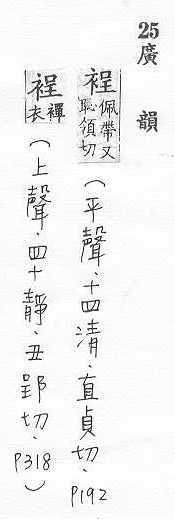 25廣韻
裎佩帶又恥領切(平聲、十四清、直貞切、P192
裎禪衣(上聲、四十靜、丑郢切、P318)